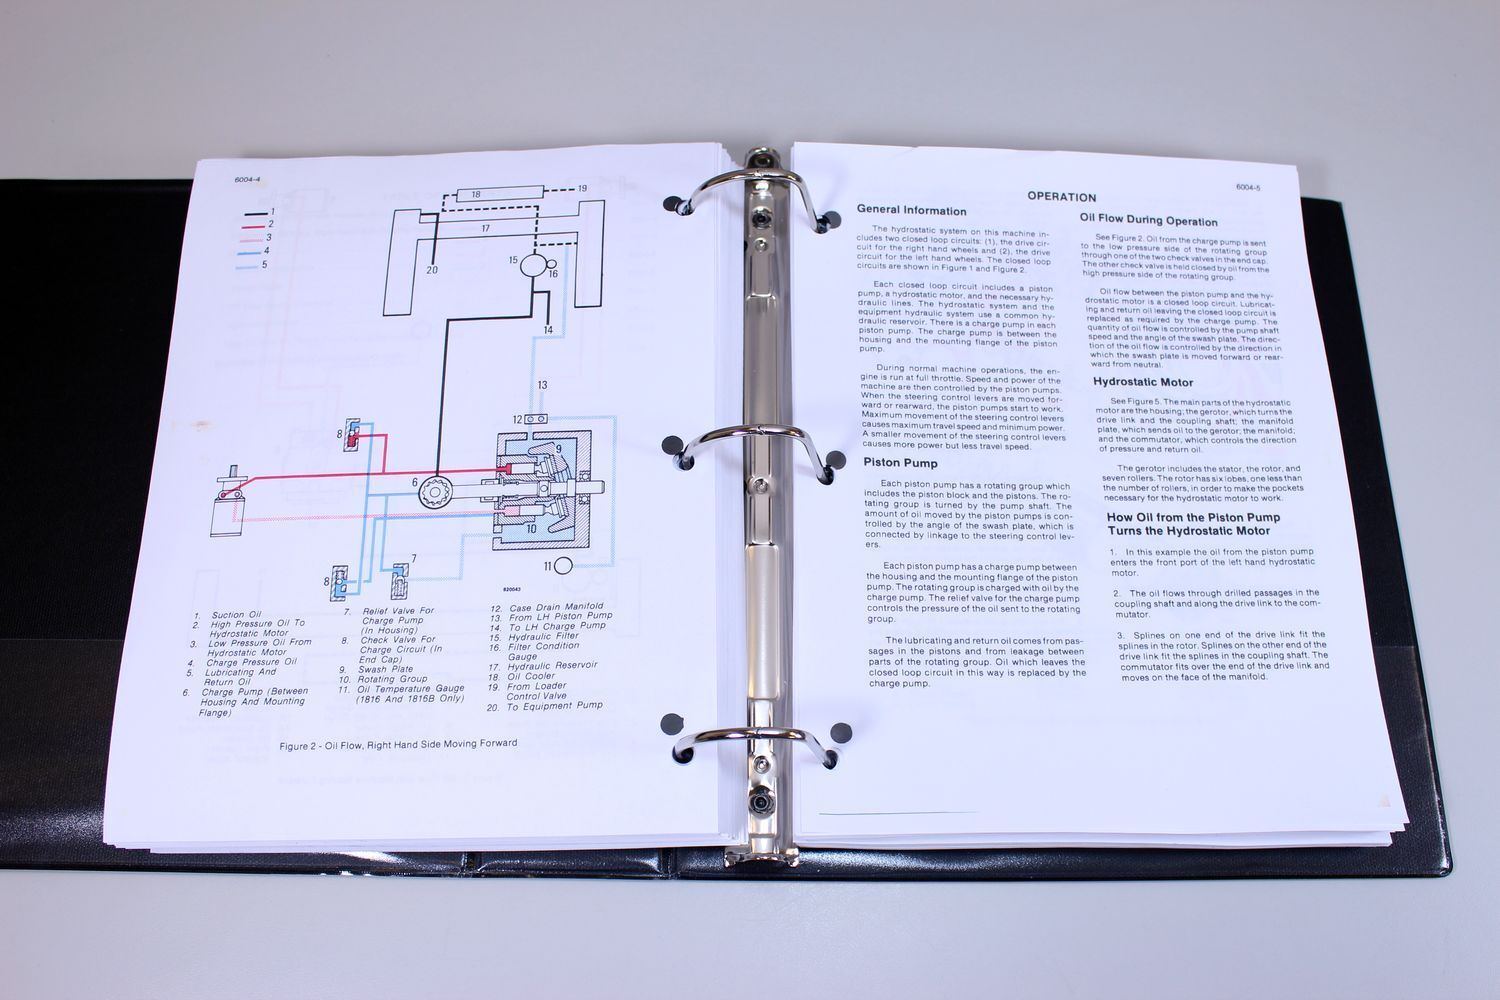 6004-4
1
2
3
4
5
18
19
17
20
15
16
14
13
12
8
9
6
10
11
7
8
820043
1. Suction Oil
2. High Pressure Oil To
Hydrostatic Motor
3. Low Pressure Oil From
Hydrostatic Motor
4. Charge Pressure Oil
5. Lubricating And
Return Oil
6. Charge Pump (Between
Housing And Mounting
Flange)
7. Relief Valve For
Charge Pump
(In Housing)
8. Check Valve For
Charge Circuit (In
End Cap)
9. Swash Plate
10. Rotating Group
11. Oil Temperature Gauge
(1816 And 1816B Only)
12. Case Drain Manifold
13. From LH Piston Pump
14. To LH Charge Pump
15. Hydraulic Filter
16. Filter Condition
Gauge
17. Hydraulic Reservoir
18. Oil Cooler
19. From Loader
Control Valve
20. To Equipment Pump
Figure 2 - Oil Flow, Right Hand Side Moving Forward
6004-5
OPERATION
General Information
The hydrostatic system on this machine in-
cludes two closed loop circuits: (1), the drive cir-
cuit for the right hand wheels and (2), the drive
circuit for the left hand wheels. The closed loop
circuits are shown in Figure 1 and Figure 2.
Each closed loop circuit includes a piston
pump, a hydrostatic motor, and the necessary hy-
draulic lines. The hydrostatic system and the
equipment hydraulic system use a common hy-
draulic reservoir. There is a charge pump in each
piston pump. The charge pump is between the
housing and the mounting flange of the piston
pump.
During normal machine operations, the en-
gine is run at full throttle. Speed and power of the
machine are then controlled by the piston pumps.
When the steering control levers are moved for-
ward or rearward, the piston pumps start to work.
Maximum movement of the steering control levers
causes maximum travel speed and minimum power.
A smaller movement of the steering control levers
causes more power but less travel speed.
Piston Pump
Each piston pump has a rotating group which
includes the piston block and the pistons. The ro-
tating group is turned by the pump shaft. The
amount of oil moved by the piston pumps is con-
trolled by the angle of the swash plate, which is
connected by linkage to the steering control lev-
ers.
Each piston pump has a charge pump between
the housing and the mounting flange of the piston
pump. The rotating group is charged with oil by the
charge pump. The relief valve for the charge pump
controls the pressure of the oil sent to the rotating
group.
The lubricating and return oil comes from pas-
sages in the pistons and from leakage between
parts of the rotating group. Oil which leaves the
closed loop circuit in this way is replaced by the
charge pump.
Oil Flow During Operation
See Figure 2. Oil from the charge pump is sent
to the low pressure side of the rotating group
through one of the two check valves in the end cap.
The other check valve is held closed by oil from the
high pressure side of the rotating group.
Oil flow between the piston pump and the hy-
drostatic motor is a closed loop circuit. Lubricat-
ing and return oil leaving the closed loop circuit is
replaced as required by the charge pump. The
quantity of oil flow is controlled by the pump shaft
speed and the angle of the swash plate. The direc-
tion of the oil flow is controlled by the direction in
which the swash plate is moved forward or rear-
ward from neutral.
Hydrostatic Motor
See Figure 5. The main parts of the hydrostatic
motor are the housing; the gerotor, which turns the
drive link and the coupling shaft; the manifold
plate, which sends oil to the gerotor; the manifold,
and the commutator, which controls the direction
of pressure and return oil.
The gerotor includes the stator, the rotor, and
seven rollers. The rotor has six lobes, one less than
the number of rollers, in order to make the pockets
necessary for the hydrostatic motor to work.
How Oil from the Piston Pump
Turns the Hydrostatic Motor
1. In this example the oil from the piston pump
enters the front port of the left hand hydrostatic
motor.
2. The oil flows through drilled passages in the
coupling shaft and along the drive link to the com-
mutator.
3. Splines on one end of the drive link fit the
splines in the rotor. Splines on the other end of the
drive link fit the splines in the coupling shaft. The
commutator fits over the end of the drive link and
moves on the face of the manifold.